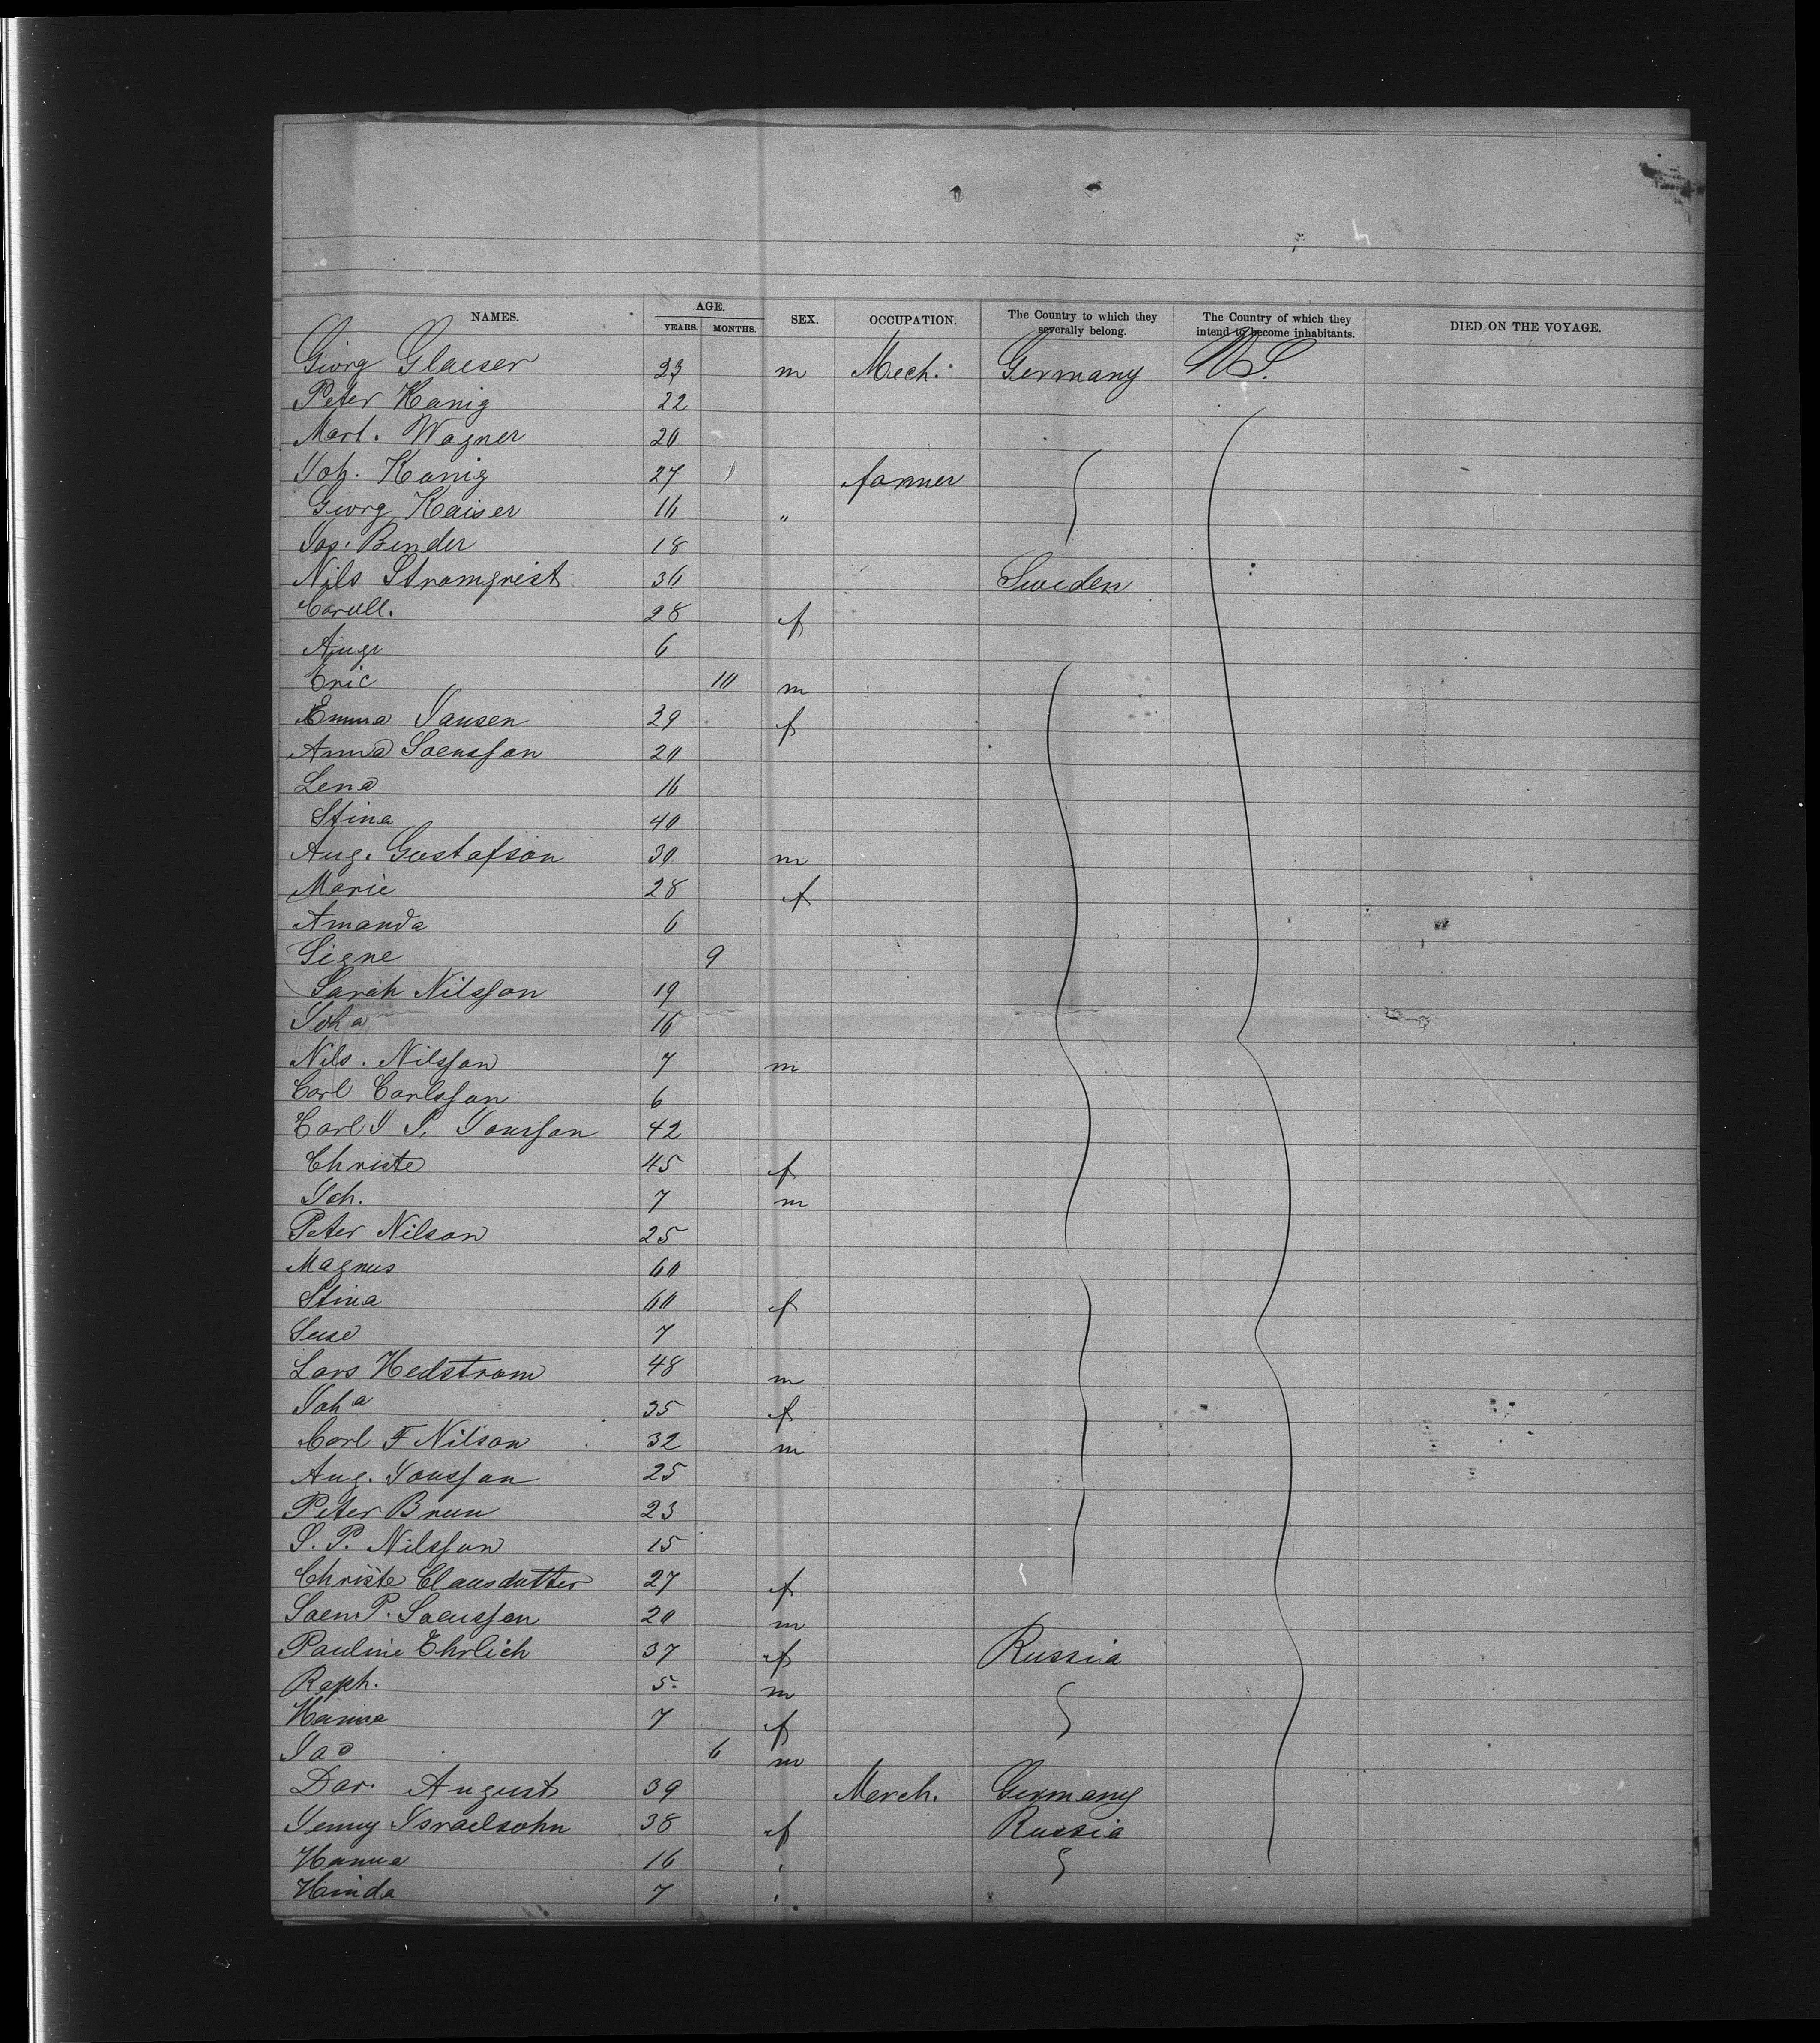 NAMES. AGE. YEARS. MONTHS. SEX. OCCUPATION. The Country to which they severally belong. The Country of which they intend to become inhabitants. DIED ON THE VOYAGE.
Georg Glaeser 23 m Mech. Germany U S.
Peter Kanig 22
Mart. Wagner 20
Joh. Kanig 27 farmer
Georg Kaiser 16 "
Jos. Binder 18
Nils Stromqvist 36 Sweden
Caroll. 28 f
Auge 6
Eric 10 m
Emma Jansen 39 f
Anna Svensson 20
Lena 16
Stina 40
Aug. Gustafson 30 m
Marie 28 f
Amanda 6
Signe 9
Sarah Nilsson 19
Joha 16
Nils. Nilsson 7 m
Carl Carlsson 6
Carl J P. Jonsson 42
Christe 45 f
Joh. 7 m
Peter Nilson 25
Magnus 60
Stina 60 f
Suse 7
Lars Hedstrom 48 m
Joha 35 f
Carl F Nilson 32 m
Aug. Jonsson 25
Peter Brun 23
S. P. Nilsson 15
Christe Clausdatter 27 f
Sven P. Svensson 20 m
Pauline Ehrlich 37 f Russia
Raph. 5 m
Hanna 7 f
Jac 6 m
Dav. August 39 Merch. Germany
Jenny Israelsohn 38 f Russia
Hanna 16
Hinda 7